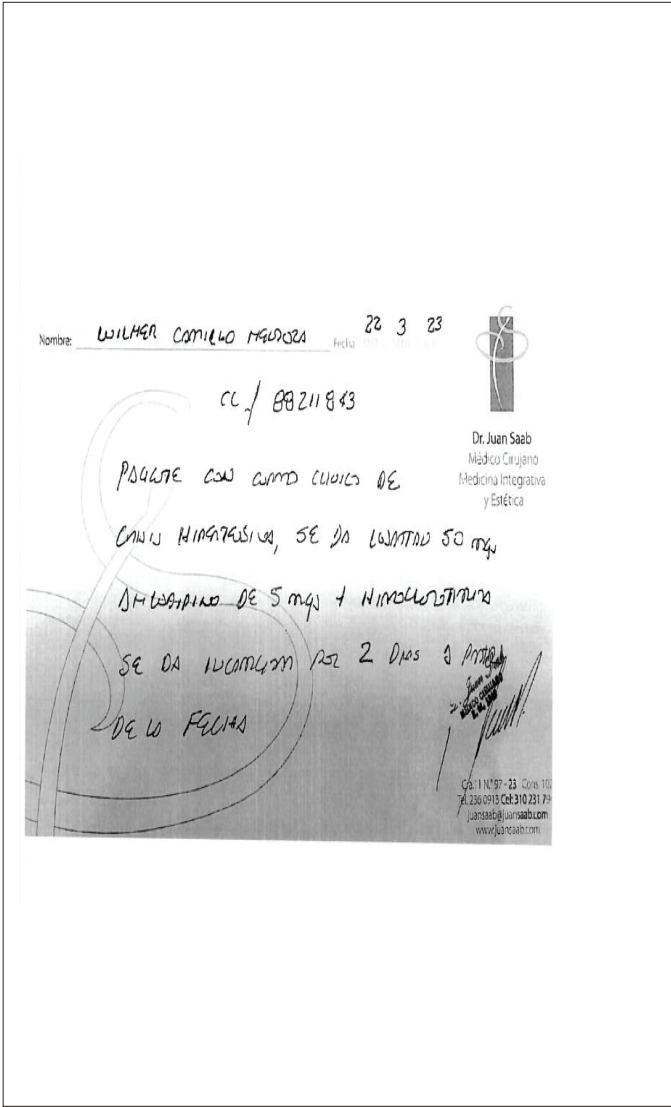 Nombre: WILMER CAMILLO MENDOZA Fecha 22 3 23
CC / 88211843
Dr. Juan Saab
Médico Cirujano
Medicina Integrativa
y Estética
PACIENTE CON CUADRO CLINICO DE
CRISIS HIPERTENSIVA, SE DA LOSARTAN 50 mgs
AMLODIPINO DE 5 mgs + HIDROCLOROTIAZIDA
SE DA INCAPACIDAD POR 2 DIAS A PARTIR
DE LA FECHA
Cra. 11 N.° 97 - 23 Cons. 102
Tel. 236 0913 Cel: 310 231 79
juansaab@juansaab.com
www.juansaab.com